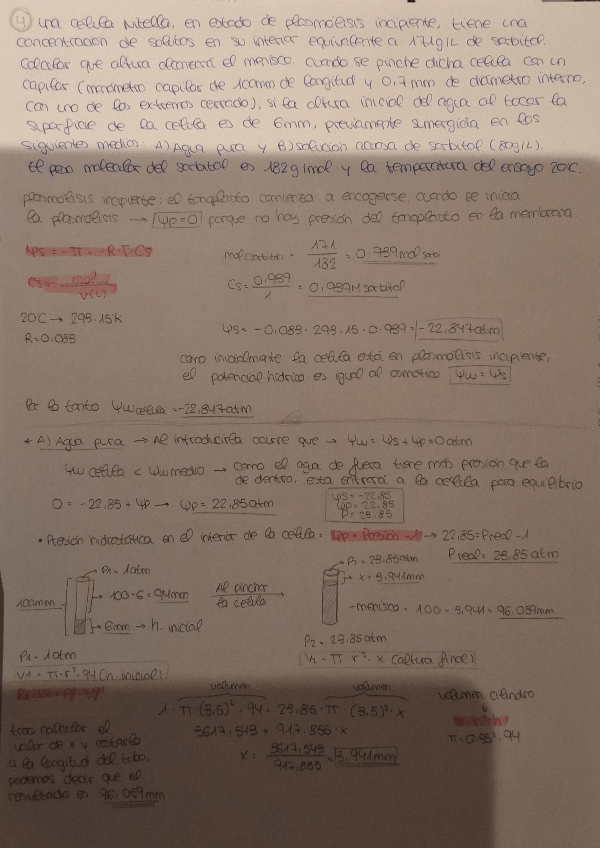 ④ una celula Nitella, en estado de plasmolisis incipiente, tiene una
concentracion de solitos en su interior equivalente a 171g/L de sorbitol.
Calcular que altura alcanzará el menisco, cuando se pinche dicha celula con un
capilar (manómetro capilar de 100mm de longitud y 0,7mm de diametro interno,
con uno de los extremos cerrado), si la altura inicial del agua al tocar la
superficie de la celula es de 6mm, previamente sumergida en los
siguientes medios: A) Agua pura y B) solucion acuosa de sorbitol (80g/L).
El peso molecular del sorbitol es 182g/mol y la temperatura del ensayo 20C.
plasmolisis incipiente: el tonoplasto comienza a encogerse, cuando se inicia
la plasmolisis → Ψp=0 porque no hay presion del tonoplasto en la membrana.
Ψs = -π = -R·T·Cs
mol(sorbitol) = 171/182 = 0,939mol
Cs = mol/V(L)
Cs = 0,939/1 = 0,939M sorbitol
20C → 293.15K
R=0.083
Ψs = -0,083 · 293,15 · 0,939 = -22,847atm
como inicialmente la celula está en plasmolisis incipiente,
el potencial hidrico es igual al osmotico Ψw = Ψs
Por lo tanto Ψw celula = -22,847atm
* A) Agua pura → Al introducirla ocurre que → Ψw = Ψs + Ψp = 0 atm
Ψw celula < Ψw medio → como el agua de fuera tiene más presion que la
de dentro, esta entrará a la celula para equilibrio
0 = -22,85 + Ψp → Ψp = 22,85atm
Ψs = -22,85
Ψp = 22,85
P = 23.85
• Presión hidrostática en el interior de la celula: Ψp = Presion - 1 → 22,85 = Preal - 1
Preal = 23,85 atm
P1 = 1atm
100-6 = 94mm
100mm
6mm → h. inicial
Al pinchar
la celula
P2 = 23.85atm
x = 3,941mm
menisco = 100 - 3,941 = 96,059mm
P1 = 1atm
P2 = 23.85atm
V1 = π·r²·94 (h. inicial)
(V2 = π·r²·x (altura final)
volumen volumen
1 · π · (3,5)² · 94 = 23,85 · π · (3,5)² · x
3617,543 = 917,855 · x
x = 3617,543/917,855 = 3,941mm
volumen cilindro
π · 0.35² · 94
tras calcular el
valor de x y restarlo
a la longitud del tubo,
podemos decir que el
resultado es 96,059mm